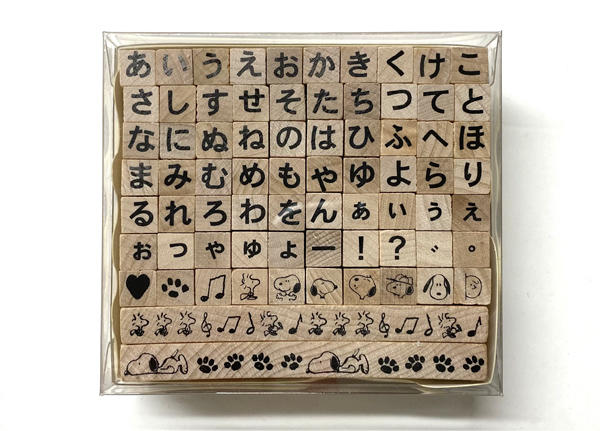 あいうえおかきくけこ
さしすせそたちつてと
なにぬねのはひふへほ
まみむめもやゆよらり
るれろわをんぁぃぅぇ
ぉっゃゅょー!?゛゜